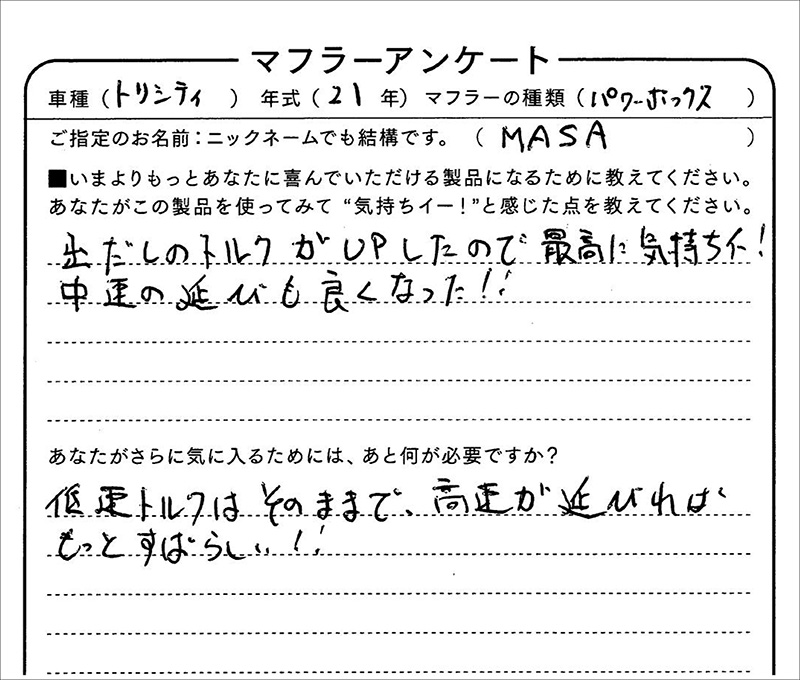 マフラーアンケート
車種（トリシティ）年式（21年）マフラーの種類（パワーボックス）
ご指定のお名前：ニックネームでも結構です。（MASA）
■いまよりもっとあなたに喜んでいただける製品になるために教えてください。
あなたがこの製品を使ってみて“気持ちイー！”と感じた点を教えてください。
出だしのトルクがUPしたので最高に気持ちイー！
中速の延びも良くなった！！
あなたがさらに気に入るためには、あと何が必要ですか？
低速トルクはそのままで、高速が延びれば
もっとすばらしい！！